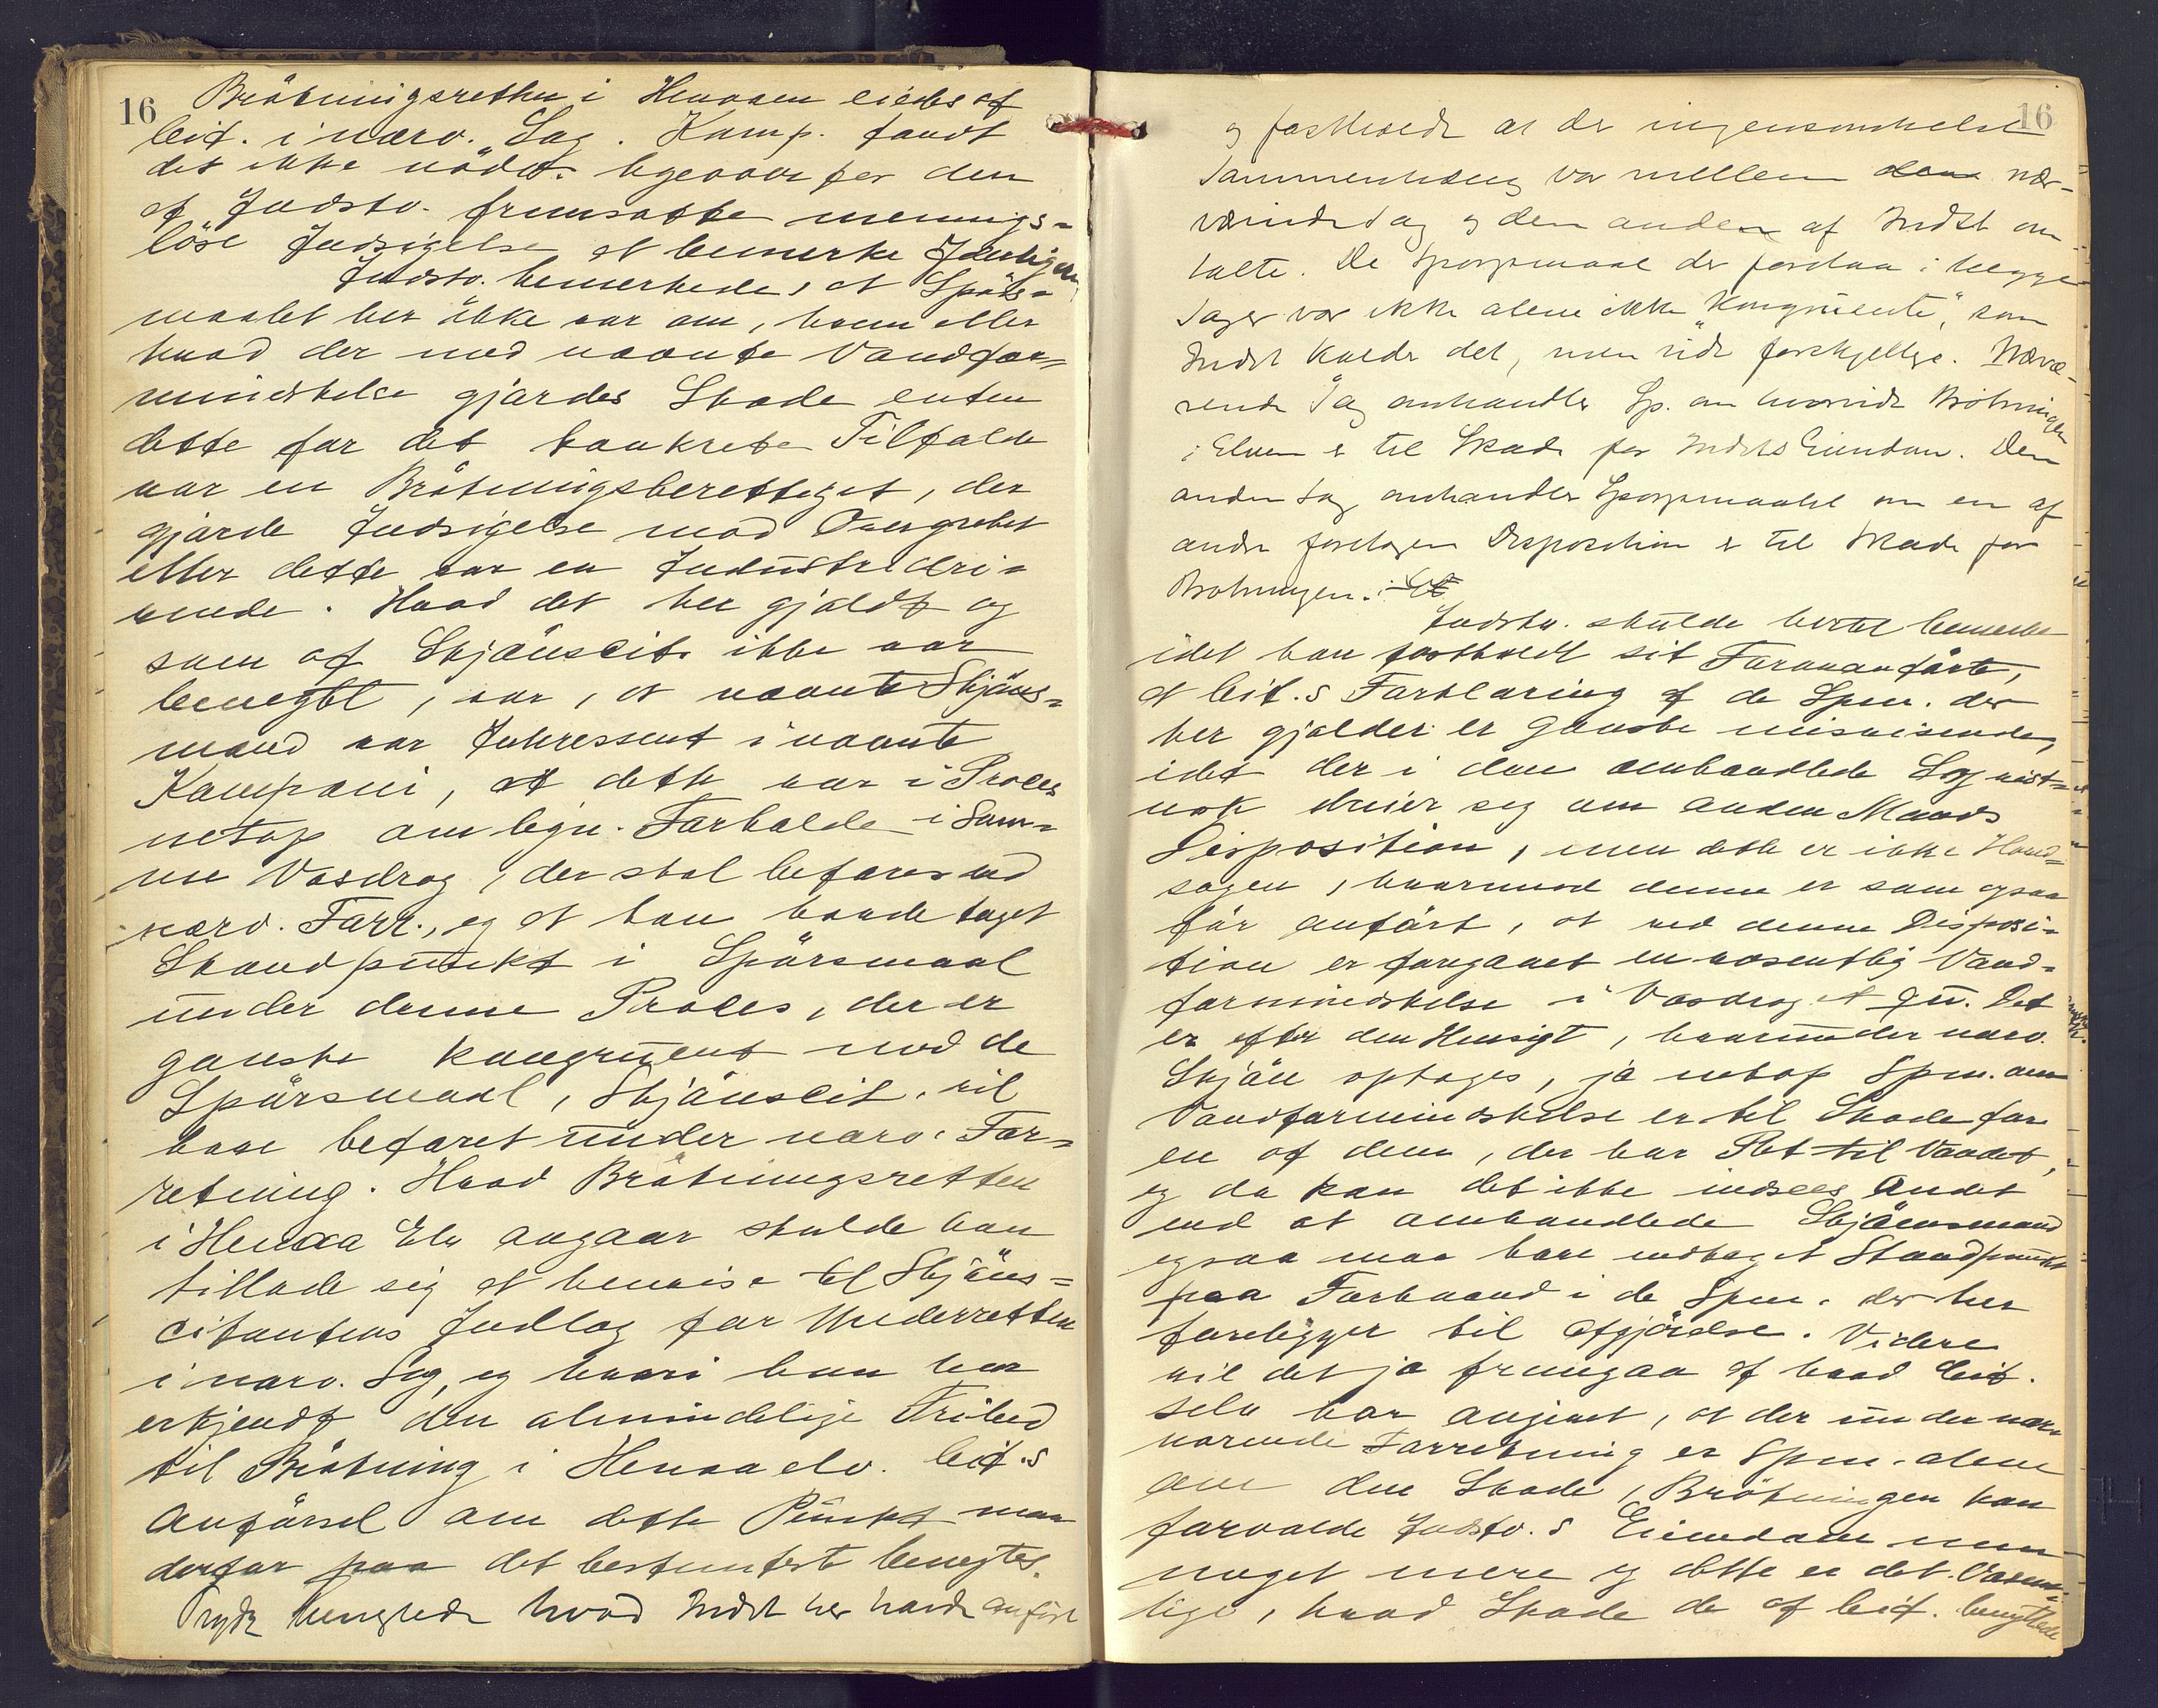 16
Brötningsretten i Henaaen eiedes af
Cit. i nærv. Sag. Kamp. fandt
det ikke nödv. ligeover for den
af Indstv. fremsatte menings-
löse Indsigelse at bemerke Yderligere
Indstv. bemerkede, at Spörs-
maalet her ikke var om, hvem eller
hvad der med nævnte Vandfor-
mindskelse gjordes Skade enten
dette for det konkrete Tilfælde
var en Brötningsberettiget, der
gjorde Indsigelse mod Overgrebet
eller dette var en Industridri-
vende. Hvad det her gjaldt og
som af Skjönscit. ikke var
benegtet, var, at nævnte Skjöns-
mand var Interessent i nævnte
Kompani, at dette var i Proces
netop om lign. Forholde i Sam-
me Vasdrag, der skal befares ved
nærv. Forr., og at han havde taget
Standpunkt i Spörsmaal
under denne Proces, der er
ganske kongruent med de
Spörsmaal, Skjönscit. vil
have befaret under nærv. For-
retning. Hvad Brötningsretten
i Henaa Elv angaar skulde han
tillade sig at henvise til Skjöns-
citantens Indlæg for Underretten
i nærv. Sag, og hvori hun har
erkjendt den almindelige Frihed
til Brötning i Henaaelv. Cit.s
Anförsel om dette Punkt maa
derfor paa det bestemteste benegtes.
Prydz benegtede hvad Indst her havde anfört
16
og fastholdt at der ingensomhelst
Sammenhæng var mellem nær-
værende Sag og den anden af Indst om-
talte. De Spörgsmaal der forelaa i begge
Sager var ikke alene ikke "kongruente", som
Indst kalder det, men vidt forskjellige. Nærvæ-
rende Sag omhandler Sp. om hvorvidt Brötningen
i Elven er til Skade for Indsts Eiendom. Den
anden Sag omhandler Spörgsmaalet om en af
andre foretagen Disposition er til Skade for
Brötningen.
Indstv. skulde hertil bemerke
idet han fastholdt sit Forananförte,
at Cit.s Forklaring af de Spm. der
her gjælder er ganske misvisende,
idet der i den omhandlede Sag vist-
nok dreier sig om anden Mands
Disposition, men dette er ikke Hoved-
sagen, hvormod denne er som ogsaa
för anfört, at ved denne Disposi-
tion er foregaaet en væsentlig Vand-
formindskelse i Vasdraget
er efter den Hensigt, hvorunder nærv.
Skjön optages, ja netop Spm. om
Vandformindskelse er til Skade for
en af dem, der har Ret til Vandet,
og da kan det ikke indsees Andet
end at omhandlede Skjönsmand
ogsaa maa have indtaget Standpunkt
paa Forhaand i de Spm. der her
foreligger til Afgjörelse. Videre
vil det jo fremgaa af hvad Cit.
selv har angivet, at der under nær-
værende Forretning er Spm. alene
om den Skade, Brötningen kan
forvolde Indstv.s Eiendom men
noget mere og dette er det Væsent-
lige, hvad Skade de af Cit. benyttede